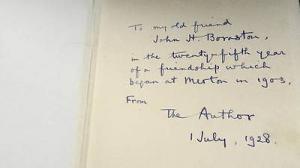 To my old friend
John H. Bornston,
in the twenty-fifth year
of a friendship which
began at Merton in 1903,
From
The Author
1 July, 1928.